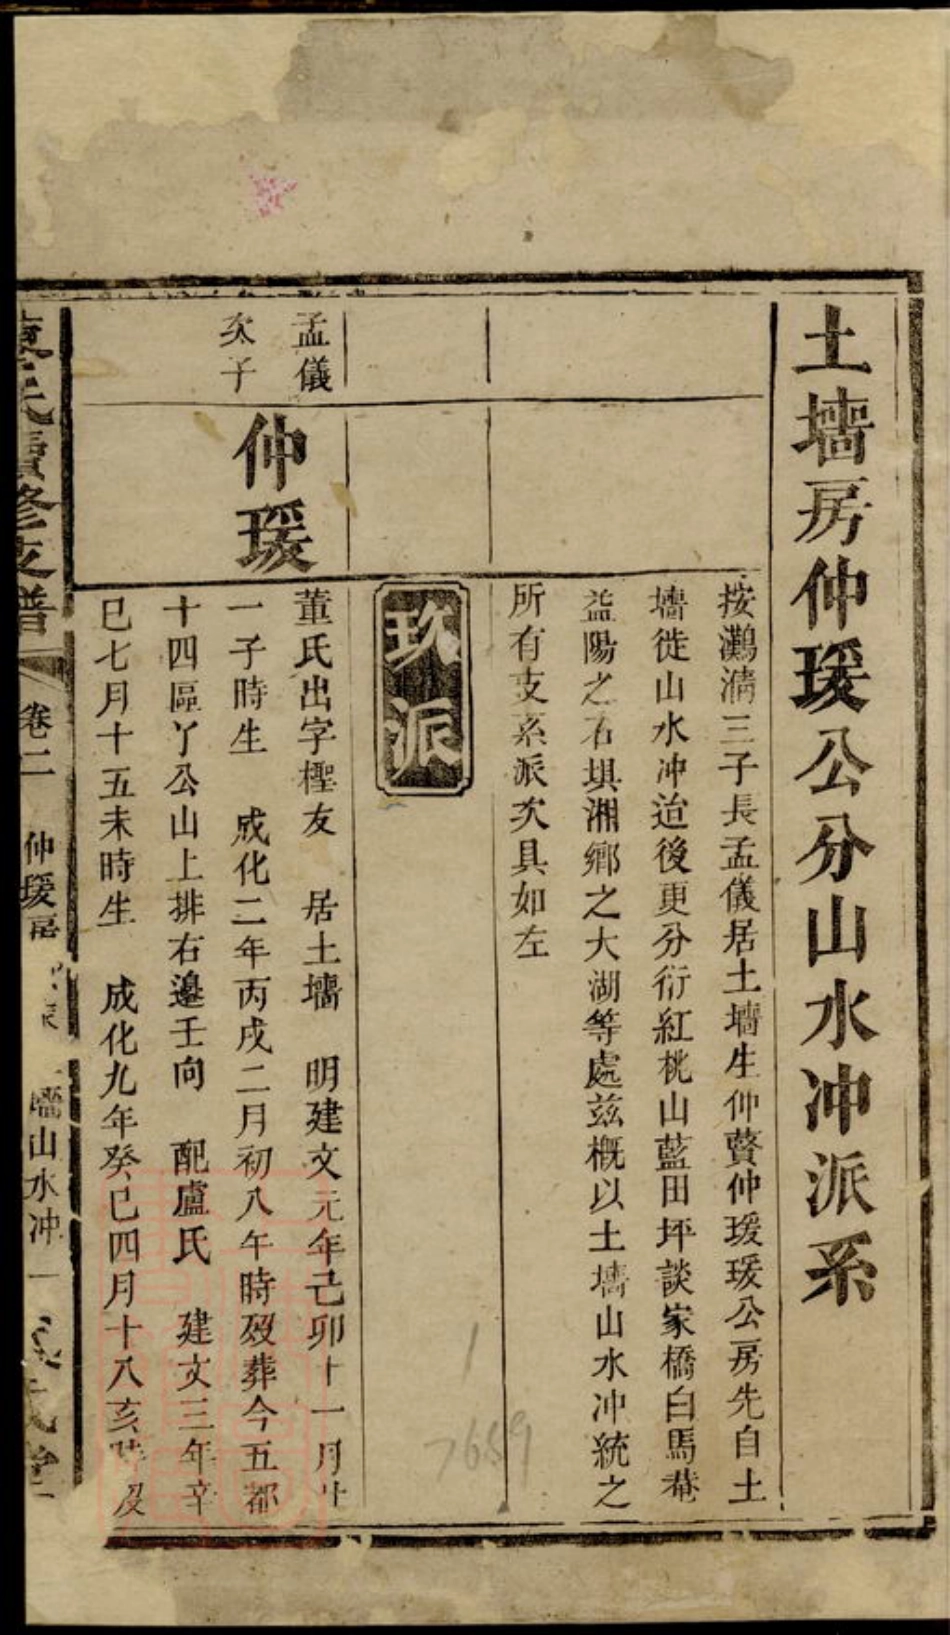 土墻房仲瑗公分山水冲派系
按灘淸三子長孟儀居土墻生仲贇仲瑗瑗公房先自土
墻徙山水冲迨後更分衍紅桃山藍田坪談家橋白馬菴
益陽之石埧湘鄉之大湖等處茲槪以土墻山水冲統之
所有支系派次具如左
玖派
孟儀
次子
仲瑗
董氏出字檉友 居土墻 明建文元年己卯十一月廿
一子時生 成化二年丙戌二月初八午時歿葬今五都
十四區丫公山上排右邊壬向 配盧氏 建文三年辛
巳七月十五未時生 成化九年癸巳四月十八亥時歿
氏續修支譜
卷二
仲瑗房
墻山水冲
一